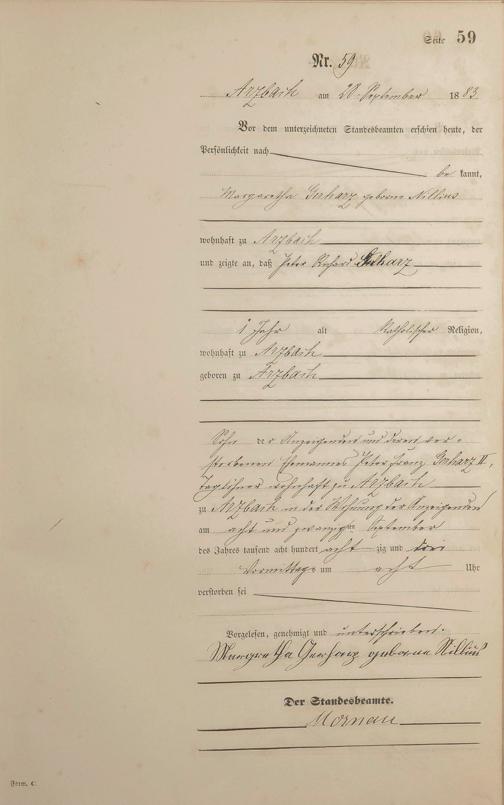 Seite 59
Nr. 59
Arzbach am 28. September 1883
Vor dem unterzeichneten Standesbeamten erschien heute, der
Persönlichkeit nach
be kannt,
Margaretha Gerharz geborne Nillius
wohnhaft zu Arzbach
und zeigte an, daß Peter Richard Gerharz
1 Jahr alt Katholischer Religion,
wohnhaft zu Arzbach
geboren zu Arzbach
Sohn der Anzeigenden und deren ver-
storbenen Ehemannes Peter Franz Gerharz II,
Taglöhner wohnhaft zu Arzbach
zu Arzbach in der Wohnung der Anzeigenden
am acht und zwanzigsten September
des Jahres tausend acht hundert acht zig und drei
Vormittags um acht Uhr
verstorben sei
Vorgelesen, genehmigt und unterschrieben.
Margretha Gerharz geborne Nillius
Der Standesbeamte.
Form. C.